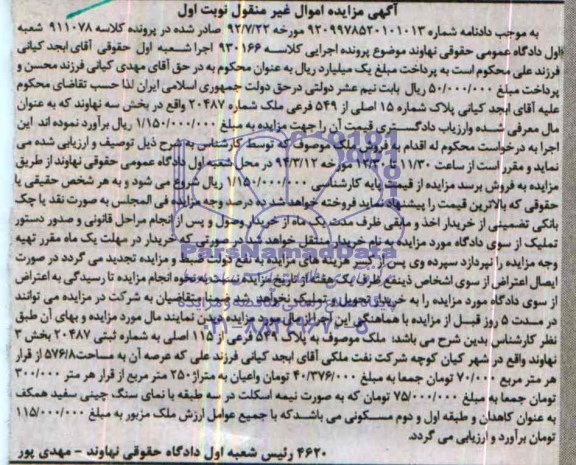 آگهی مزایده اموال غیر منقول نوبت اول
به موجب دادنامه شماره ۹۲۰۹۹۷۸۵۲۰۱۰۱۰۱۳ مورخه ۹۲/۷/۲۲ صادر شده در پرونده کلاسه ۹۱۱۰۷۸ شعبه
اول دادگاه عمومی حقوقی نهاوند موضوع پرونده اجرایی کلاسه ۹۳۰۱۶۶ اجرا شعبه اول حقوقی آقای ابجد کیانی
فرزند علی محکوم است به پرداخت مبلغ یک میلیارد ریال به عنوان محکوم به در حق آقای مهدی کیانی فرزند محسن و
پرداخت مبلغ ۵۰/۰۰۰/۰۰۰ ریال بابت نیم عشر دولتی در حق دولت جمهوری اسلامی ایران لذا حسب تقاضای محکوم
علیه آقای ابجد کیانی پلاک شماره ۱۵ اصلی از ۵۴۹ فرعی ملک شماره ۲۰۴۸۷ واقع در بخش سه نهاوند که به عنوان
مال معرفی شده وارزیاب دادگستری قیمت آن را جهت مزایده به مبلغ ۱/۱۵۰/۰۰۰/۰۰۰ ریال برآورد نموده اند این
اجرا به درخواست محکوم له اقدام به فروش ملک موصوف که توسط کارشناس به شرح ذیل توصیف و ارزیابی می شده
نماید و مقرر است از ساعت ۱۱/۳۰ تا ۱۲/۳۰ مورخه ۹۴/۳/۱۲ در محل شعبه اول دادگاه عمومی حقوقی نهاوند از طریق
مزایده به فروش برسد مزایده از قیمت پایه کارشناسی ۱/۱۵۰/۰۰۰/۰۰۰ ریال شروع می شود و به هر شخص حقیقی یا
حقوقی که بالاترین قیمت را پیشنهاد نماید فروخته خواهد شد ده درصد وجه مزایده فی المجلس به صورت نقد یا چک
بانکی تضمینی از خریدار اخذ و مابقی ظرف مدت یک ماه از خریدار وصول و پس از انجام مراحل قانونی و صدور دستور
تملیک از سوی دادگاه مورد مزایده به نام خریدار منتقل خواهد شد در صورتی که خریدار در مهلت یک ماه مقرر تهیه
وجه مزایده را نپردازد سپرده وی پس از کسر هزینه های مزایده به نفع دولت ضبط و مزایده تجدید می گردد در صورت
ایصال اعتراض از سوی اشخاص ذینفع ظرف یک هفته از تاریخ مزایده نسبت به نحوه انجام مزایده تا رسیدگی به اعتراض
از سوی دادگاه مورد مزایده را به خریدار تحویل و تملیک نخواهد شد ضمنا متقاضیان به شرکت در مزایده می توانند
در مدت ۵ روز قبل از مزایده با هماهنگی این اجرا از مال مورد مزایده دیدن نمایند مال مورد مزایده و بهای آن طبق
نظر کارشناس بدین شرح می باشد: ملک موصوف به پلاک ۵۴۹ فرعی از ۱۱۵ اصلی به شماره ثبتی ۲۰۴۸۷ بخش ۳
نهاوند واقع در شهر کیان کوچه شرکت نفت ملکی آقای ابجد کیانی فرزند علی که عرصه آن به مساحت ۵۷۶/۸ از قرار
هر متر مربع ۷۰/۰۰۰ تومان جمعا به مبلغ ۴۰/۳۷۶/۰۰۰ تومان واعیان به متراژ ۲۵۰ متر مربع از قرار هر متر ۳۰۰/۰۰۰
تومان جمعا به مبلغ ۷۵/۰۰۰/۰۰۰ تومان که به صورت نیمه اسکلت در سه طبقه با نمای سنگ چینی سفید همکف
به عنوان کاهدان و طبقه اول و دوم مسکونی می باشد که با جمیع عوامل ارزش ملک مزبور به مبلغ ۱۱۵/۰۰۰/۰۰۰
تومان برآورد و ارزیابی می گردد.
۴۶۲۰ رئیس شعبه اول دادگاه حقوقی نهاوند - مهدی پور
ParsNamadData